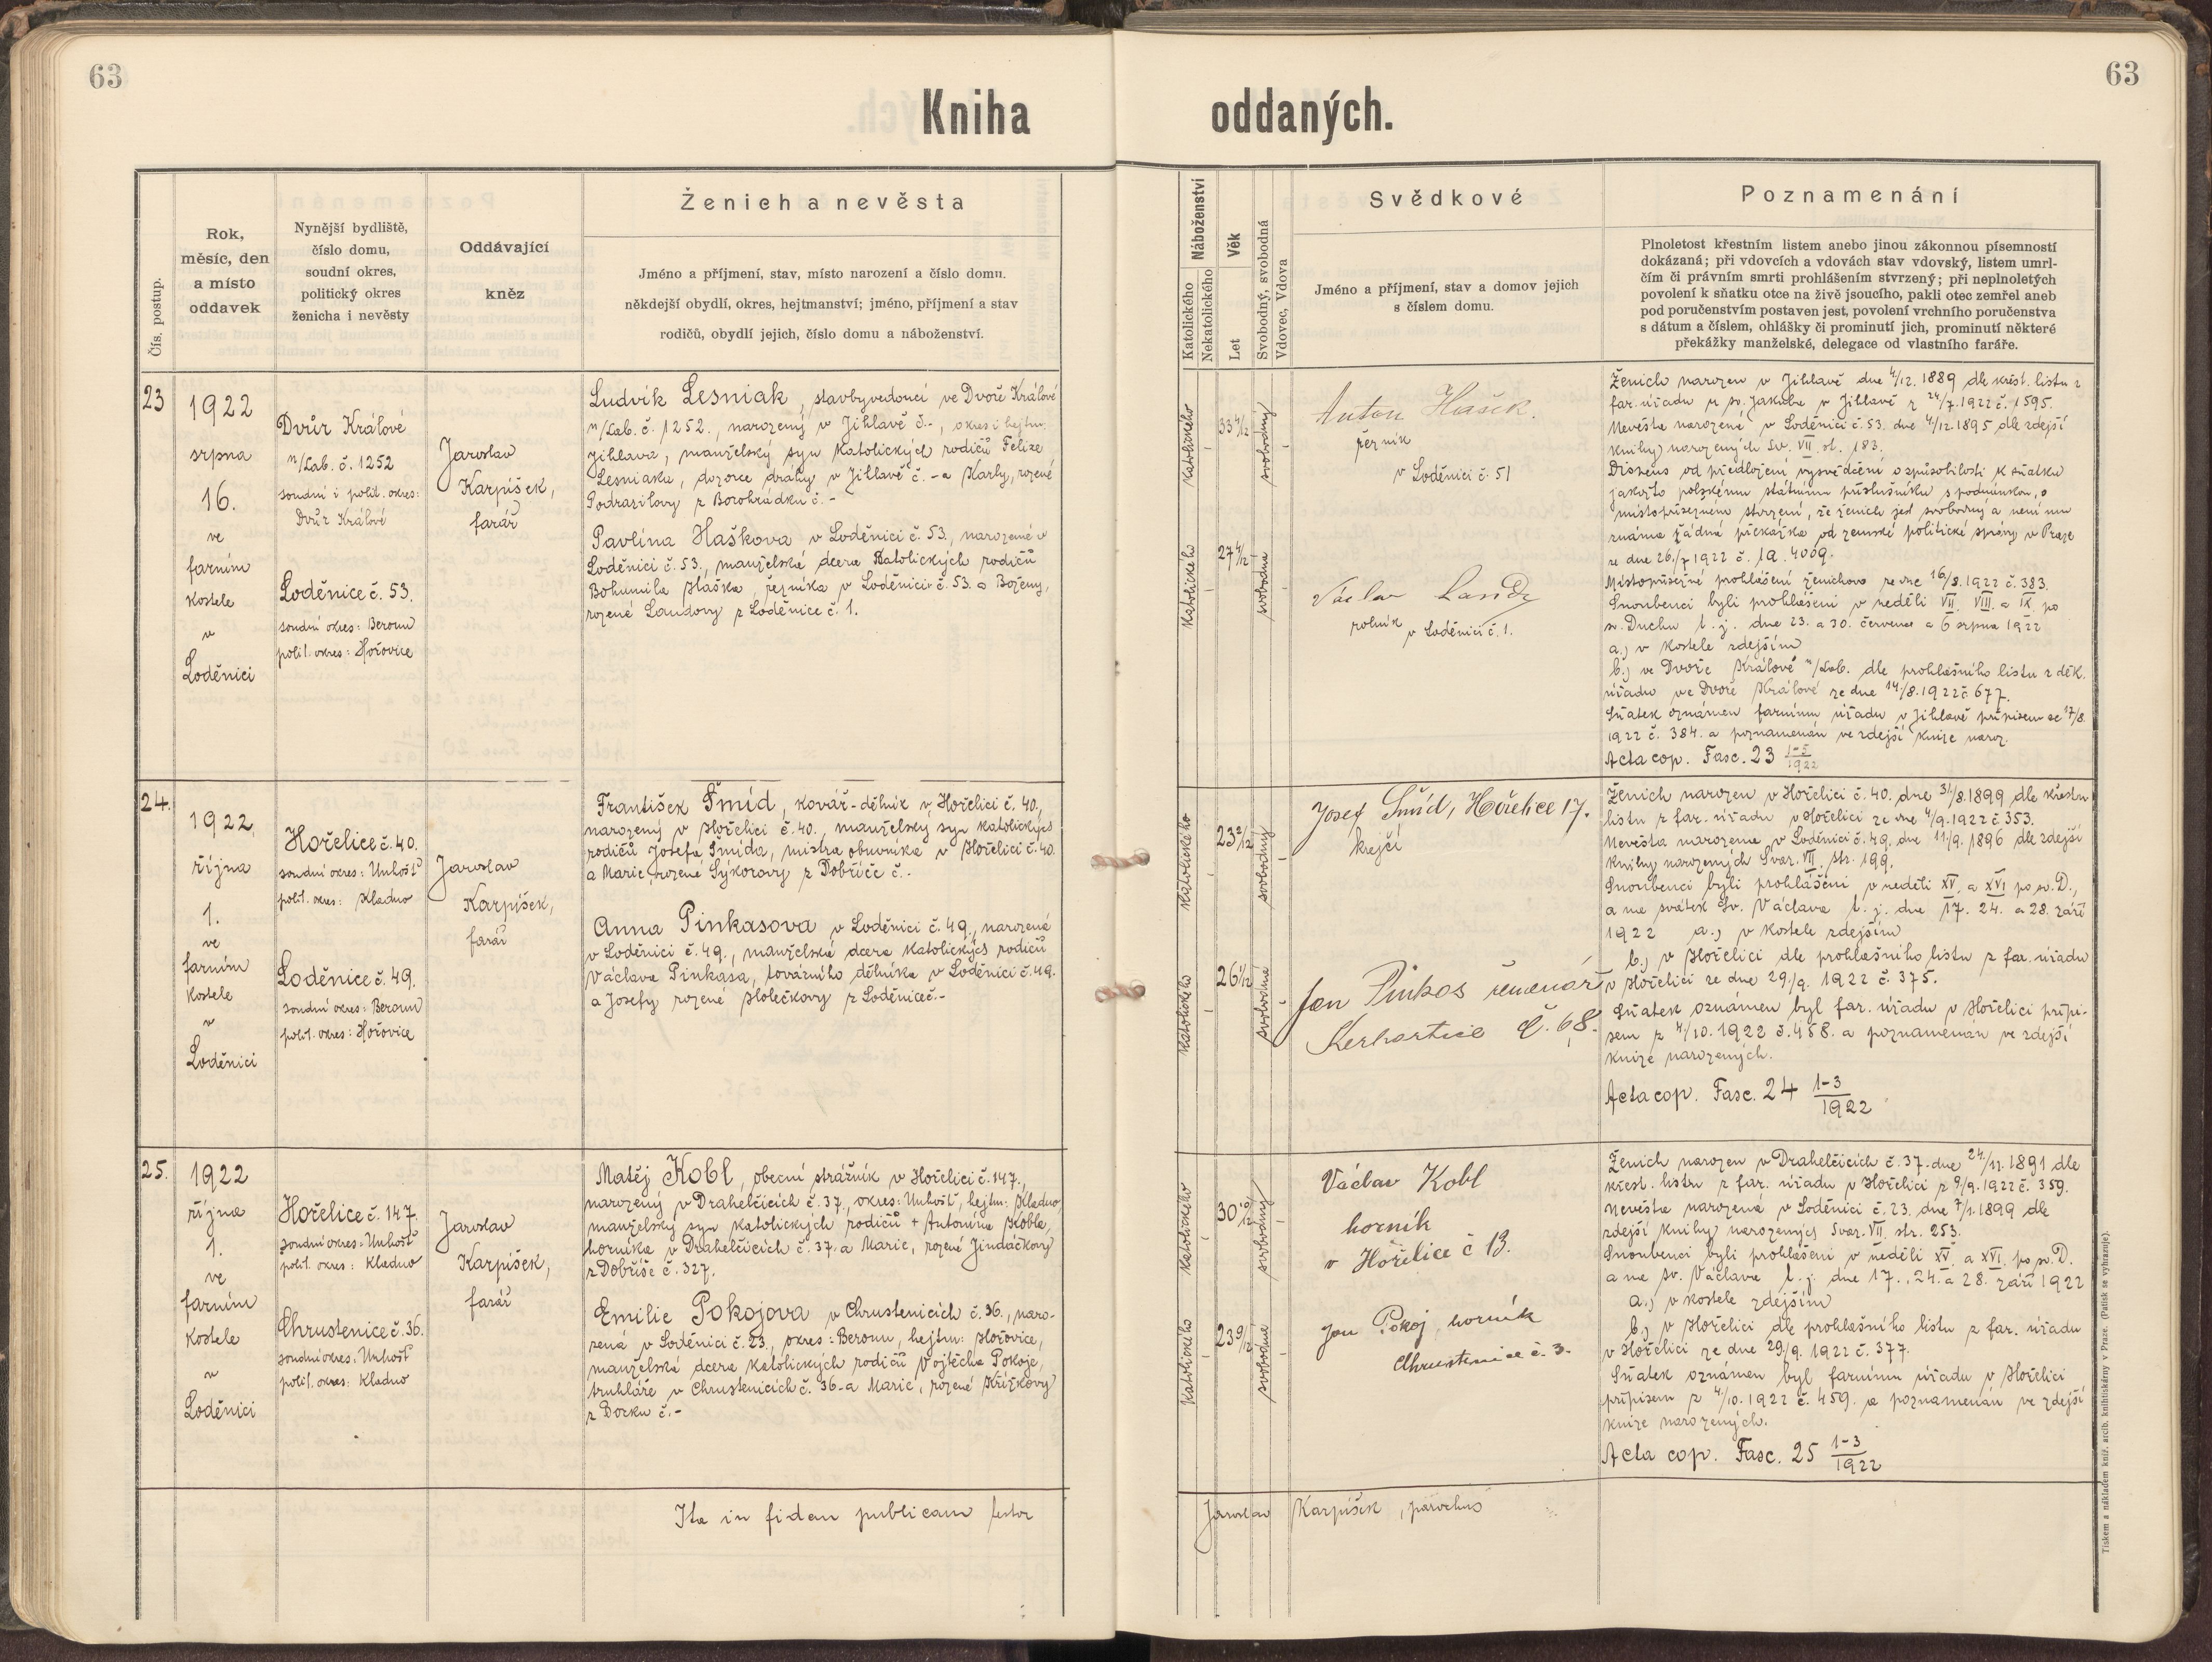 63
63
Kniha oddaných.
Čís. postup.
Rok,
měsíc, den
a místo
oddavek
Nynější bydliště,
číslo domu,
soudní okres,
politický okres
ženicha i nevěsty
Oddávající
kněz
Ženich a nevěsta
Jméno a příjmení, stav, místo narození a číslo domu.
někdejší obydlí, okres, hejtmanství; jméno, příjmení a stav
rodičů, obydlí jejich, číslo domu a náboženství.
Náboženství
Katolického
Nekatolického
Věk
Let
Svobodný, svobodná
Vdovec, Vdova
Svědkové
Jméno a příjmení, stav a domov jejich
s číslem domu.
Poznamenání
Plnoletost křestním listem anebo jinou zákonnou písemností
dokázaná; při vdovcích a vdovách stav vdovský, listem umrl-
čím či právním smrti prohlášením stvrzený; při neplnoletých
povolení k sňatku otce na živě jsoucího, pakli otec zemřel aneb
pod poručenstvím postaven jest, povolení vrchního poručenstva
s dátum a číslem, ohlášky či prominutí jich, prominutí některé
překážky manželské, delegace od vlastního faráře.
23
1922
srpna
16.
ve
farním
kostele
v
Loděnici
Dvůr Králové
n/Lab. č. 1252
soudní i polit. okres:
Dvůr Králové
Loděnice č. 53.
soudní okres: Beroun
polit. okres: Hořovice
Jaroslav
Karpíšek,
farář
Ludvík Lesniak, stavbyvedoucí ve Dvoře Králové
n/Lab. č. 1252., narozený v Jihlavě č.-, okres i hejtm.
Jihlava, manželský syn katolických rodičů Felixe
Lesniaka, dozorce dráhy v Jihlavě č. - a Karly, rozené
Podrazilovy z Borohrádku č. -
Pavlína Haškova v Loděnici č. 53., narozené v
Loděnici č. 53., manželská dcera katolických rodičů
Bohumila Haška, řezníka v Loděnici č. 53. a Boženy,
rozené Laudovy z Loděnice č. 1.
katolického
33 4/12
svobodný
katolického
27 4/12
svobodná
Anton Hašek.
řezník
v Loděnici č. 51
Václav Landa
rolník
v Loděnici č. 1.
Ženich narozen v Jihlavě dne 4/12. 1889 dle křest. listu z
far. úřadu u sv. Jakuba v Jihlavě z 24/7. 1922 č. 1595.
Nevěsta narozená v Loděnici č. 53. dne 4/12. 1895 dle zdejší
knihy narozených Sv. VII. st. 183.
Dispens od předložení vysvědčení o způsobilosti k sňatku
jakožto polskému státnímu příslušníku s podmínkou, o
místopřísežném stvrzení, že ženich jest svobodný a není mu
známa žádná překážka od zemské politické správy v Praze
ze dne 26./7 1922 č. 19. 4009.
Místopřísežné prohlášení ženichovo ze dne 16/8. 1922 č. 383.
Snoubenci byli prohlášeni v neděli VII. VIII. a IX. po
sv. Duchu t. j. dne 23. a 30. července a 6 srpna 1922
a.) v kostele zdejším
b.) ve Dvoře Králové n/Lab. dle prohlašního listu z děk.
úřadu ve Dvoře Králové ze dne 14./8. 1922 č 677.
Sňatek oznámen farnímu úřadu v Jihlavě přípisem ze 17/8.
1922 č. 384. a poznamenán ve zdejší knize naroz.
Acta cop. Fasc. 23 1-5/1922
24.
1922,
října
1.
ve
farním
kostele
v
Loděnici
Hořelice č. 40.
soudní okres: Unhošť
polit. okres: Kladno
Loděnice č. 49.
soudní okres: Beroun
polit. okres: Hořovice
Jaroslav
Karpíšek,
farář
František Šmíd, kovář-dělník v Hořelici č. 40.,
narozený v Hořelici č. 40., manželský syn katolických
rodičů Josefa Šmída, mistra obuvníka v Hořelici č. 40.
a Marie, rozené Sýkorovy z Dobříče č.-
Anna Pinkasova v Loděnici č. 49., narozená
v Loděnici č. 49., manželská dcera katolických rodičů
Václava Pinkasa, továrního dělníka v Loděnici č. 49.
a Josefy rozené Holečkovy z Loděnice č.-
katolického
23 2/12
svobodný
katolického
26 1/12
svobodná
Josef Šmíd, Hořelice 17.
krejčí
Jan Pinkas řemenář
Kerhartice č. 68.
Ženich narozen v Hořelici č. 40. dne 31/8. 1899 dle křestn.
listu z far. úřadu v Hořelici ze dne 4/9. 1922 č. 353.
Nevěsta narozena v Loděnici č. 49. dne 11/9. 1896 dle zdejší
knihy narozených Svaz. VII. str. 199.
Snoubenci byli prohlášeni v neděli XV. a XVI po sv. D.,
a na svátek Sv. Václava t. j. dne 17. 24. a 28. září
1922 a.) v kostele zdejším
b.) v Hořelici dle prohlašního listu z far. úřadu
v Hořelici ze dne 29./9. 1922 č. 375.
Sňatek oznámen byl far. úřadu v Hořelici přípi-
sem z 4/10. 1922 č. 458. a poznamenán ve zdejší
knize narozených.
Acta cop. Fasc. 24 1-3/1922
25.
1922
října
1.
ve
farním
kostele
v
Loděnici
Hořelice č. 147.
soudní okres: Unhošť
polit. okres: Kladno
Chrustenice č. 36.
soudní okres: Unhošť
polit. okres: Kladno
Jaroslav
Karpíšek,
farář
Matěj Kobl, obecní strážník v Hořelici č. 147.,
narozený v Drahelčicích č. 37., okres: Unhošť, hejtm: Kladno,
manželský syn katolických rodičů + Antonína Kobla,
horníka v Drahelčicích č. 37. a Marie, rozené Jindáčkovy
z Dobříše č. 327.
Emilie Pokojova v Chrustenicích č. 36., naro-
zená v Loděnici č. 23., okres: Beroun, hejtm: Hořovice,
manželská dcera katolických rodičů Vojtěcha Pokoje,
truhláře v Chrustenicích č. 36. a Marie, rozené Křížkovy
z Borku č.-
katolického
30 10/12
svobodný
katolického
23 9/12
svobodná
Václav Kobl
horník
v Hořelice č 13.
Jan Pokoj, horník
Chrustenice č. 3.
Ženich narozen v Drahelčicích č. 37. dne 24./11. 1891 dle
křest. listu z far. úřadu v Hořelici z 9/9. 1922 č. 359.
Nevěsta narozená v Loděnici č. 23. dne 7/1. 1899 dle
zdejší knihy narozených Svaz. VII. str. 253.
Snoubenci byli prohlášeni v neděli XV. a XVI. po sv. D.
a na sv. Václava t. j. dne 17., 24. a 28. září 1922
a.) v kostele zdejším
b.) v Hořelici dle prohlašního listu z far. úřadu
v Hořelici ze dne 29/9. 1922 č. 377.
Sňatek oznámen byl farnímu úřadu v Hořelici
přípisem z 4./10. 1922 č. 459. a poznamenán ve zdejší
knize narozených.
Acta cop. Fasc. 25 1-3/1922
Ita in fidem publicam testor
Jaroslav Karpíšek, parochus
Tiskem a nákladem kníž. arcib. knihtiskárny v Praze. (Patisk se vyhrazuje).